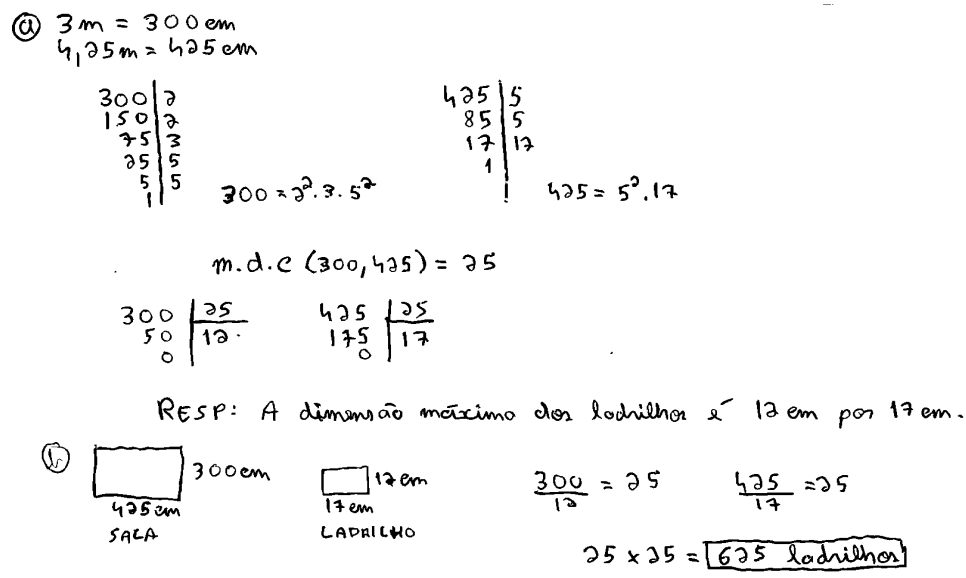 a 3m = 300cm
4,25m = 425cm
300 | 2
150 | 2
75 | 3
25 | 5
5 | 5
1
300 = 2².3.5²
425 | 5
85 | 5
17 | 17
1
425 = 5².17
m.d.c (300,425) = 25
300 | 25
50 | 12
0
425 | 25
175 | 17
0
RESP: A dimensão máxima dos ladrilhos é 12 cm por 17 cm.
b
300cm
425cm
SALA
12cm
17cm
LADRILHO
300/12 = 25
425/17 = 25
25 x 25 = 625 ladrilhos